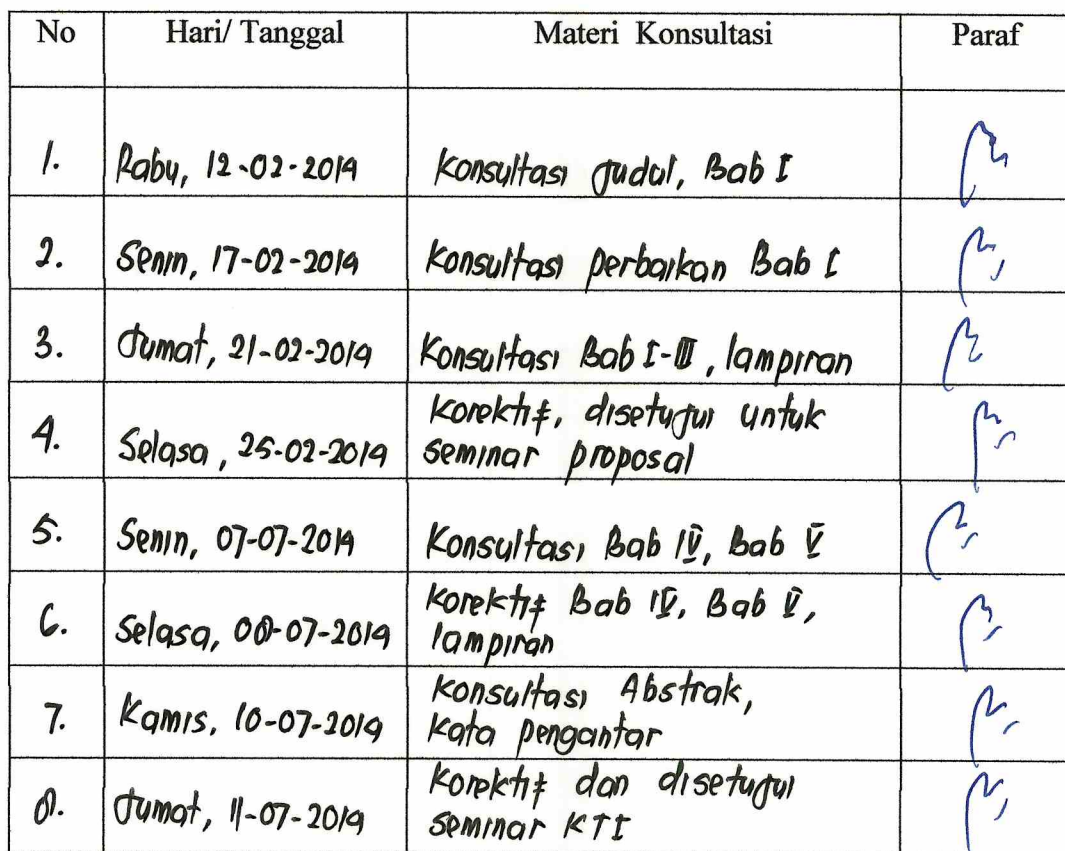 No Hari/ Tanggal Materi Konsultasi Paraf
1. Rabu, 12-02-2014 Konsultasi Judul, Bab I
2. Senin, 17-02-2014 Konsultasi perbaikan Bab I
3. Jumat, 21-02-2014 Konsultasi Bab I-III, lampiran
4. Selasa, 25-02-2014 Korektif, disetujui untuk
seminar proposal
5. Senin, 07-07-2014 Konsultasi Bab IV, Bab V
6. Selasa, 08-07-2014 Korektif Bab IV, Bab V,
lampiran
7. Kamis, 10-07-2014 Konsultasi Abstrak,
Kata pengantar
8. Jumat, 11-07-2014 Korektif dan disetujui
seminar KTI